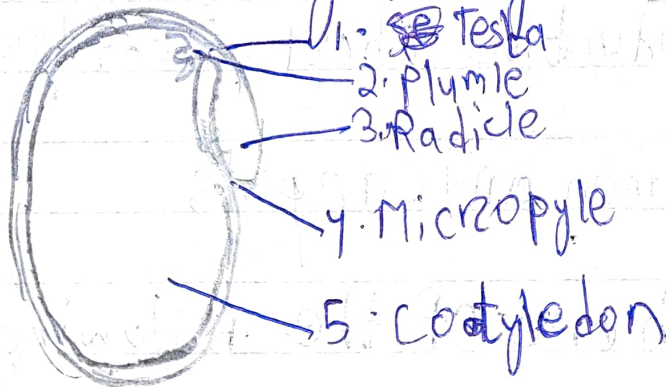 1. Testa
2. Plumle
3. Radicle
4. Micropyle
5. Cotyledon